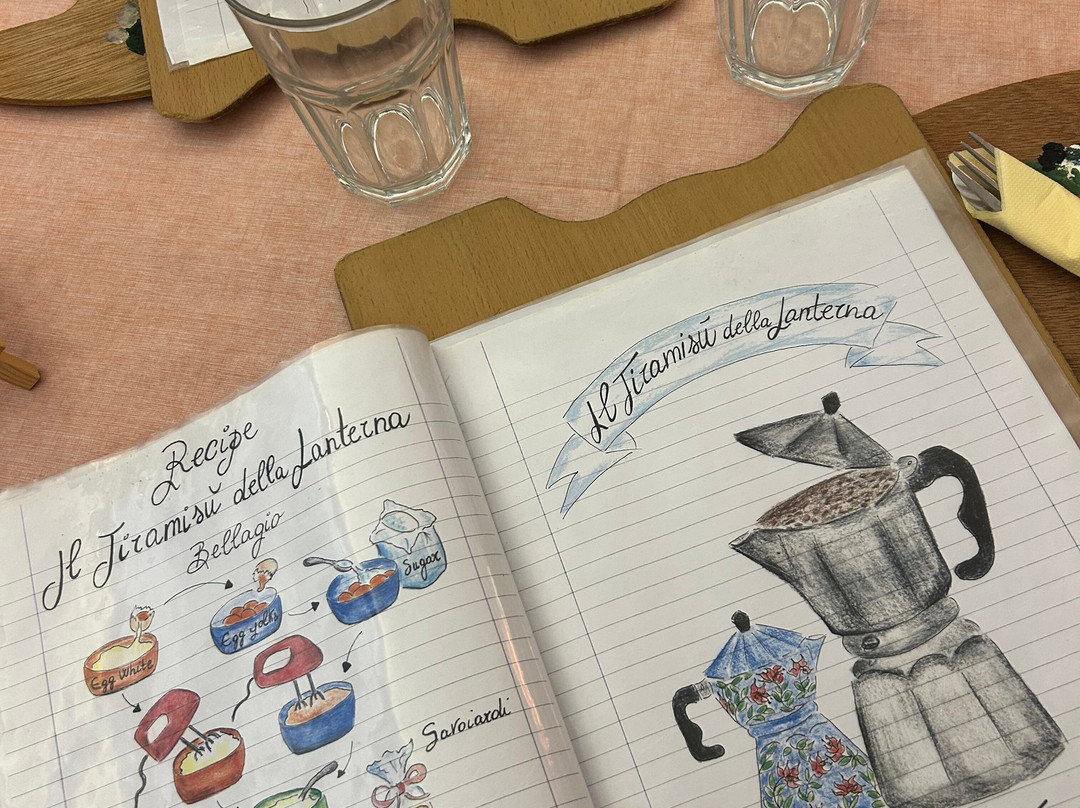 Recipe
Il Tiramisŭ della Lanterna
Bellagio
Sugar
Egg yolks
Egg White
Savoiardi
Il Tiramisŭ della Lanterna